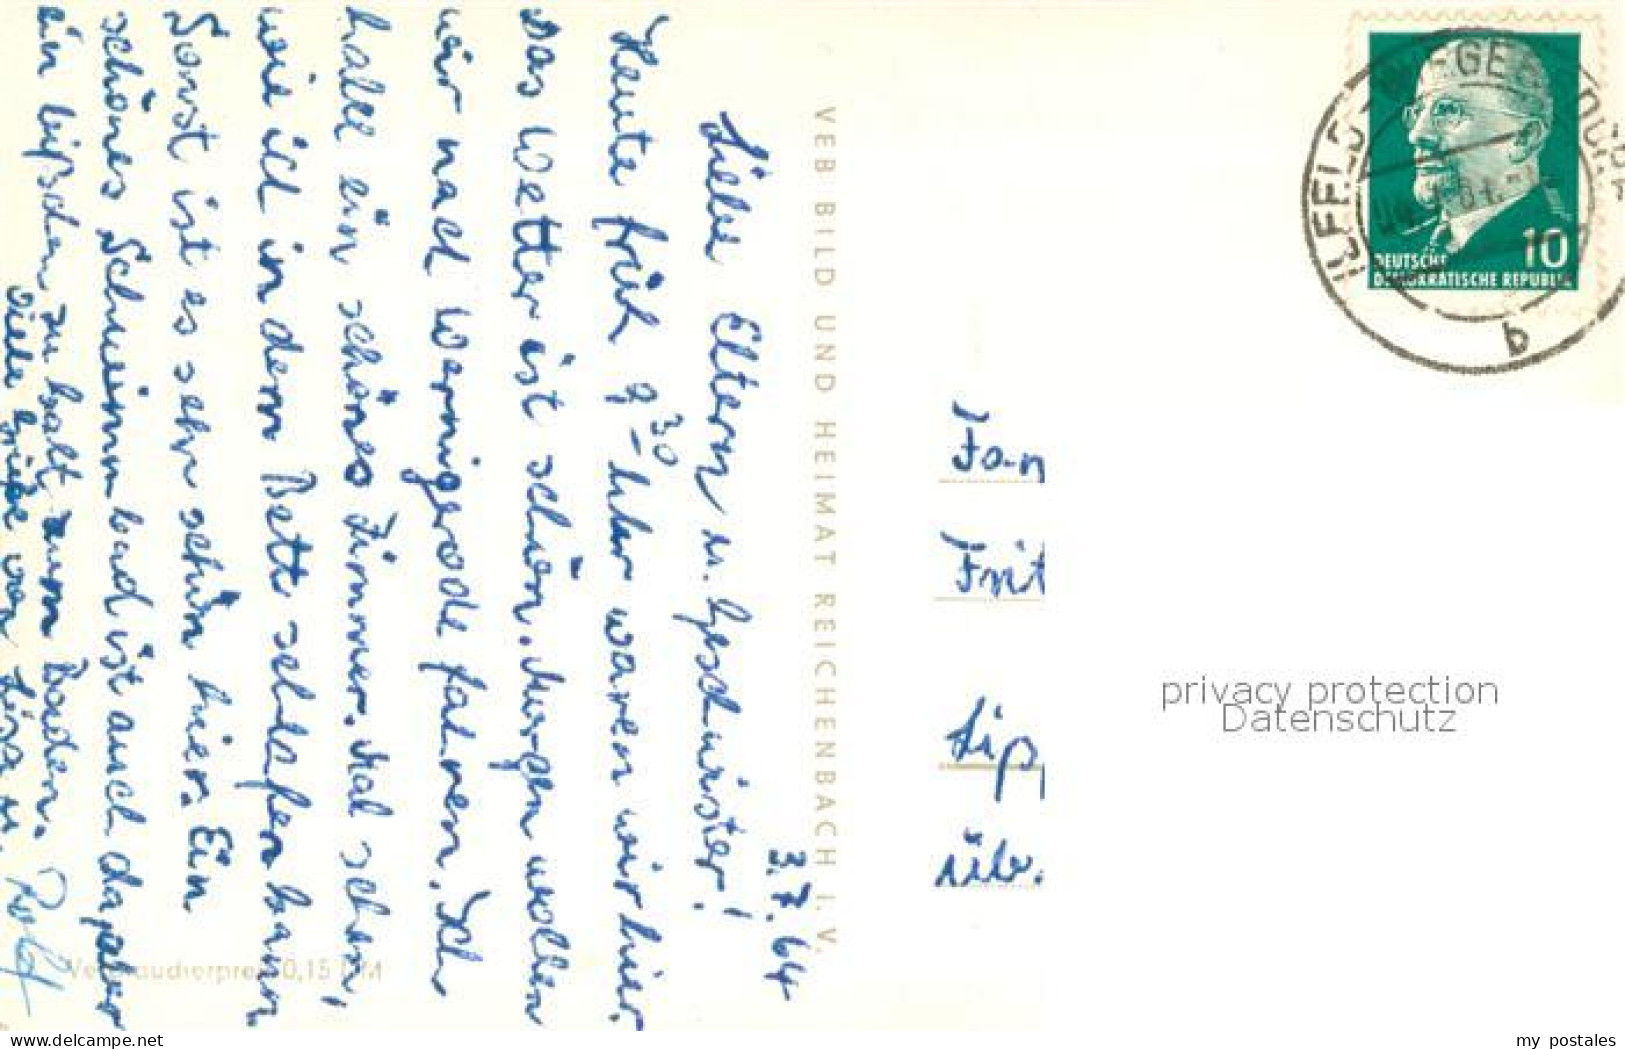 3.7.64
Liebe Eltern u. Geschwister!
Heute früh 9³⁰ Uhr waren wir hier.
Das Wetter ist schön. Morgen wollen
wir nach Wernigerode fahren. Ich
habe ein schönes Zimmer. Mal sehen,
wie ich in dem Bett schlafen kann.
Sonst ist es sehr schön hier. Ein
schönes Schwimmbad ist auch da, aber
ein bißchen zu kalt zum Baden.
Viele Grüße von u. Rolf
VEB BILD UND HEIMAT REICHENBACH I. V.
0,15 DM
ILFELD
b
10
DEUTSCHE
DEMOKRATISCHE REPUBLIK
Fam
Frit
Lip
üb.
privacy protection
Datenschutz
www.delcampe.net
my_postales